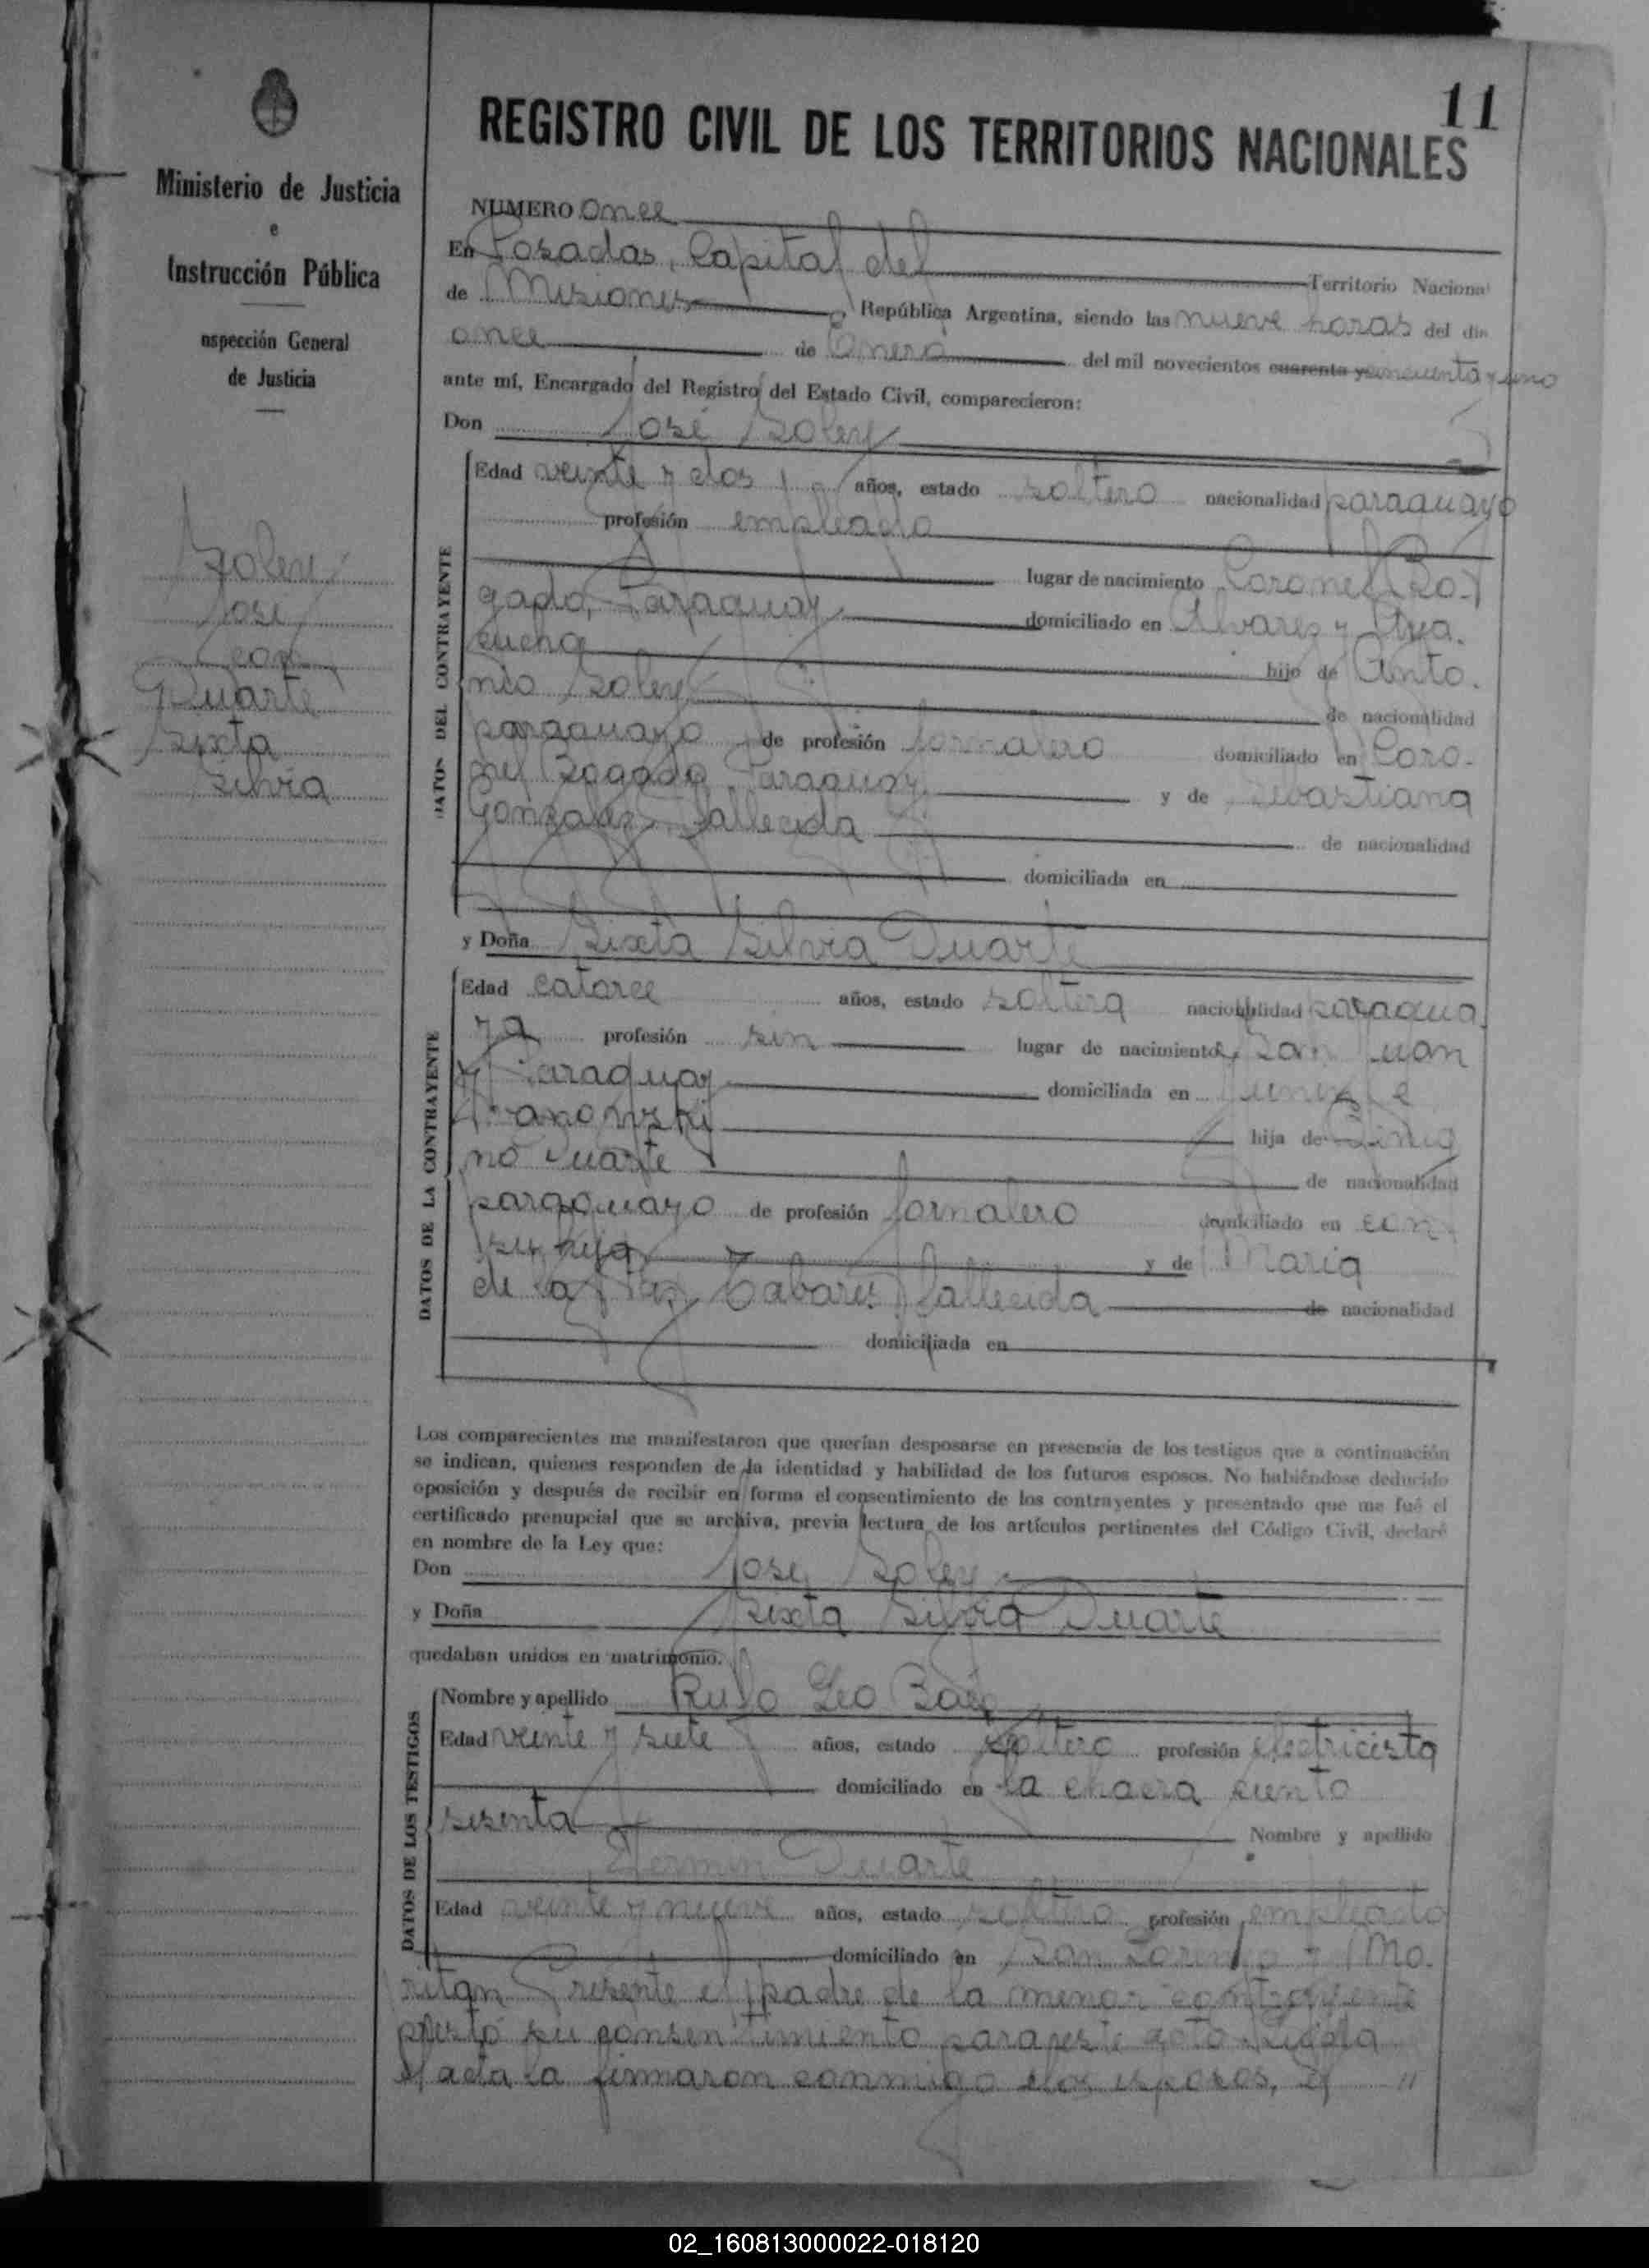 11
REGISTRO CIVIL DE LOS TERRITORIOS NACIONALES
Ministerio de Justicia
e
Instrucción Pública
nspección General
de Justicia
Soley
José
con
Duarte
Sixta
Silvia
NUMERO once
En Posadas, Capital del Territorio Naciona
de Misiones República Argentina, siendo las nueve horas del día
once de Enero del mil novecientos cuarenta y cincuenta y uno
ante mí, Encargado del Registro del Estado Civil, comparecieron:
Don José Soley
DATOS DEL CONTRAYENTE
Edad veinte y dos años, estado soltero nacionalidad paraguayo
profesión empleado
lugar de nacimiento Coronel Bo-
gado, Paraguay domiciliado en Alvarez y Aya-
cucho hijo de Anto-
nio Soley de nacionalidad
paraguayo de profesión jornalero domiciliado en Coro-
nel Bogado Paraguay y de Sebastiana
Gonzalez fallecida de nacionalidad
domiciliada en
y Doña Sixta Silvia Duarte
DATOS DE LA CONTRAYENTE
Edad catorce años, estado soltera nacionalidad paragua-
ya profesión sin lugar de nacimiento San Juan
Paraguay domiciliada en
hija de
no Duarte de nacionalidad
paraguayo de profesión jornalero domiciliado en con
su hija y de Maria
de la Paz Tabares fallecida de nacionalidad
domiciliada en
Los comparecientes me manifestaron que querían desposarse en presencia de los testigos que a continuación
se indican, quienes responden de la identidad y habilidad de los futuros esposos. No habiéndose deducido
oposición y después de recibir en forma el consentimiento de los contrayentes y presentado que me fué el
certificado prenupcial que se archiva, previa lectura de los artículos pertinentes del Código Civil, declaré
en nombre de la Ley que:
Don José Soley
y Doña Sixta Silvia Duarte
quedaban unidos en matrimonio.
DATOS DE LOS TESTIGOS
Nombre y apellido Rufo Leo Baez
Edad veinte y siete años, estado soltero profesión electricista
domiciliado en la chacra ciento
sesenta Nombre y apellido
Fermin Duarte
Edad veinte y nueve años, estado soltero profesión empleado
domiciliado en San Lorenzo y Mo-
ritan Presente el padre de la menor contrayente
prestó su consentimiento para este acto. Leída
el acta la firmaron conmigo los esposos, el "
02_160813000022-018120